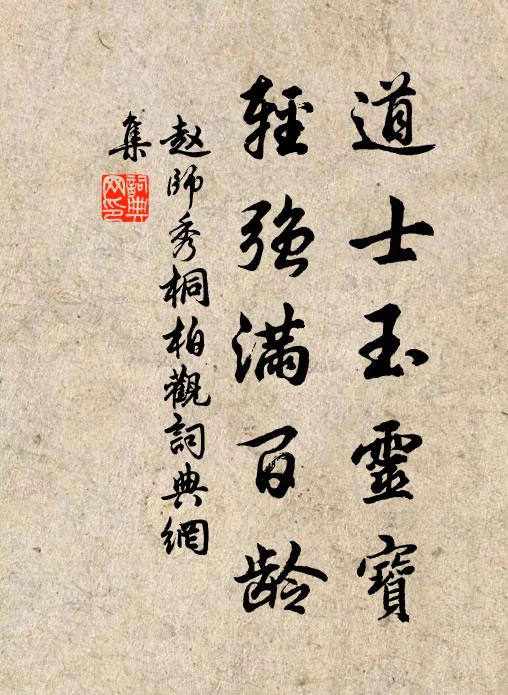 道士玉靈寶
輕強滿百齡
赵師秀桐柏觀詞典網
集
詞典
网印